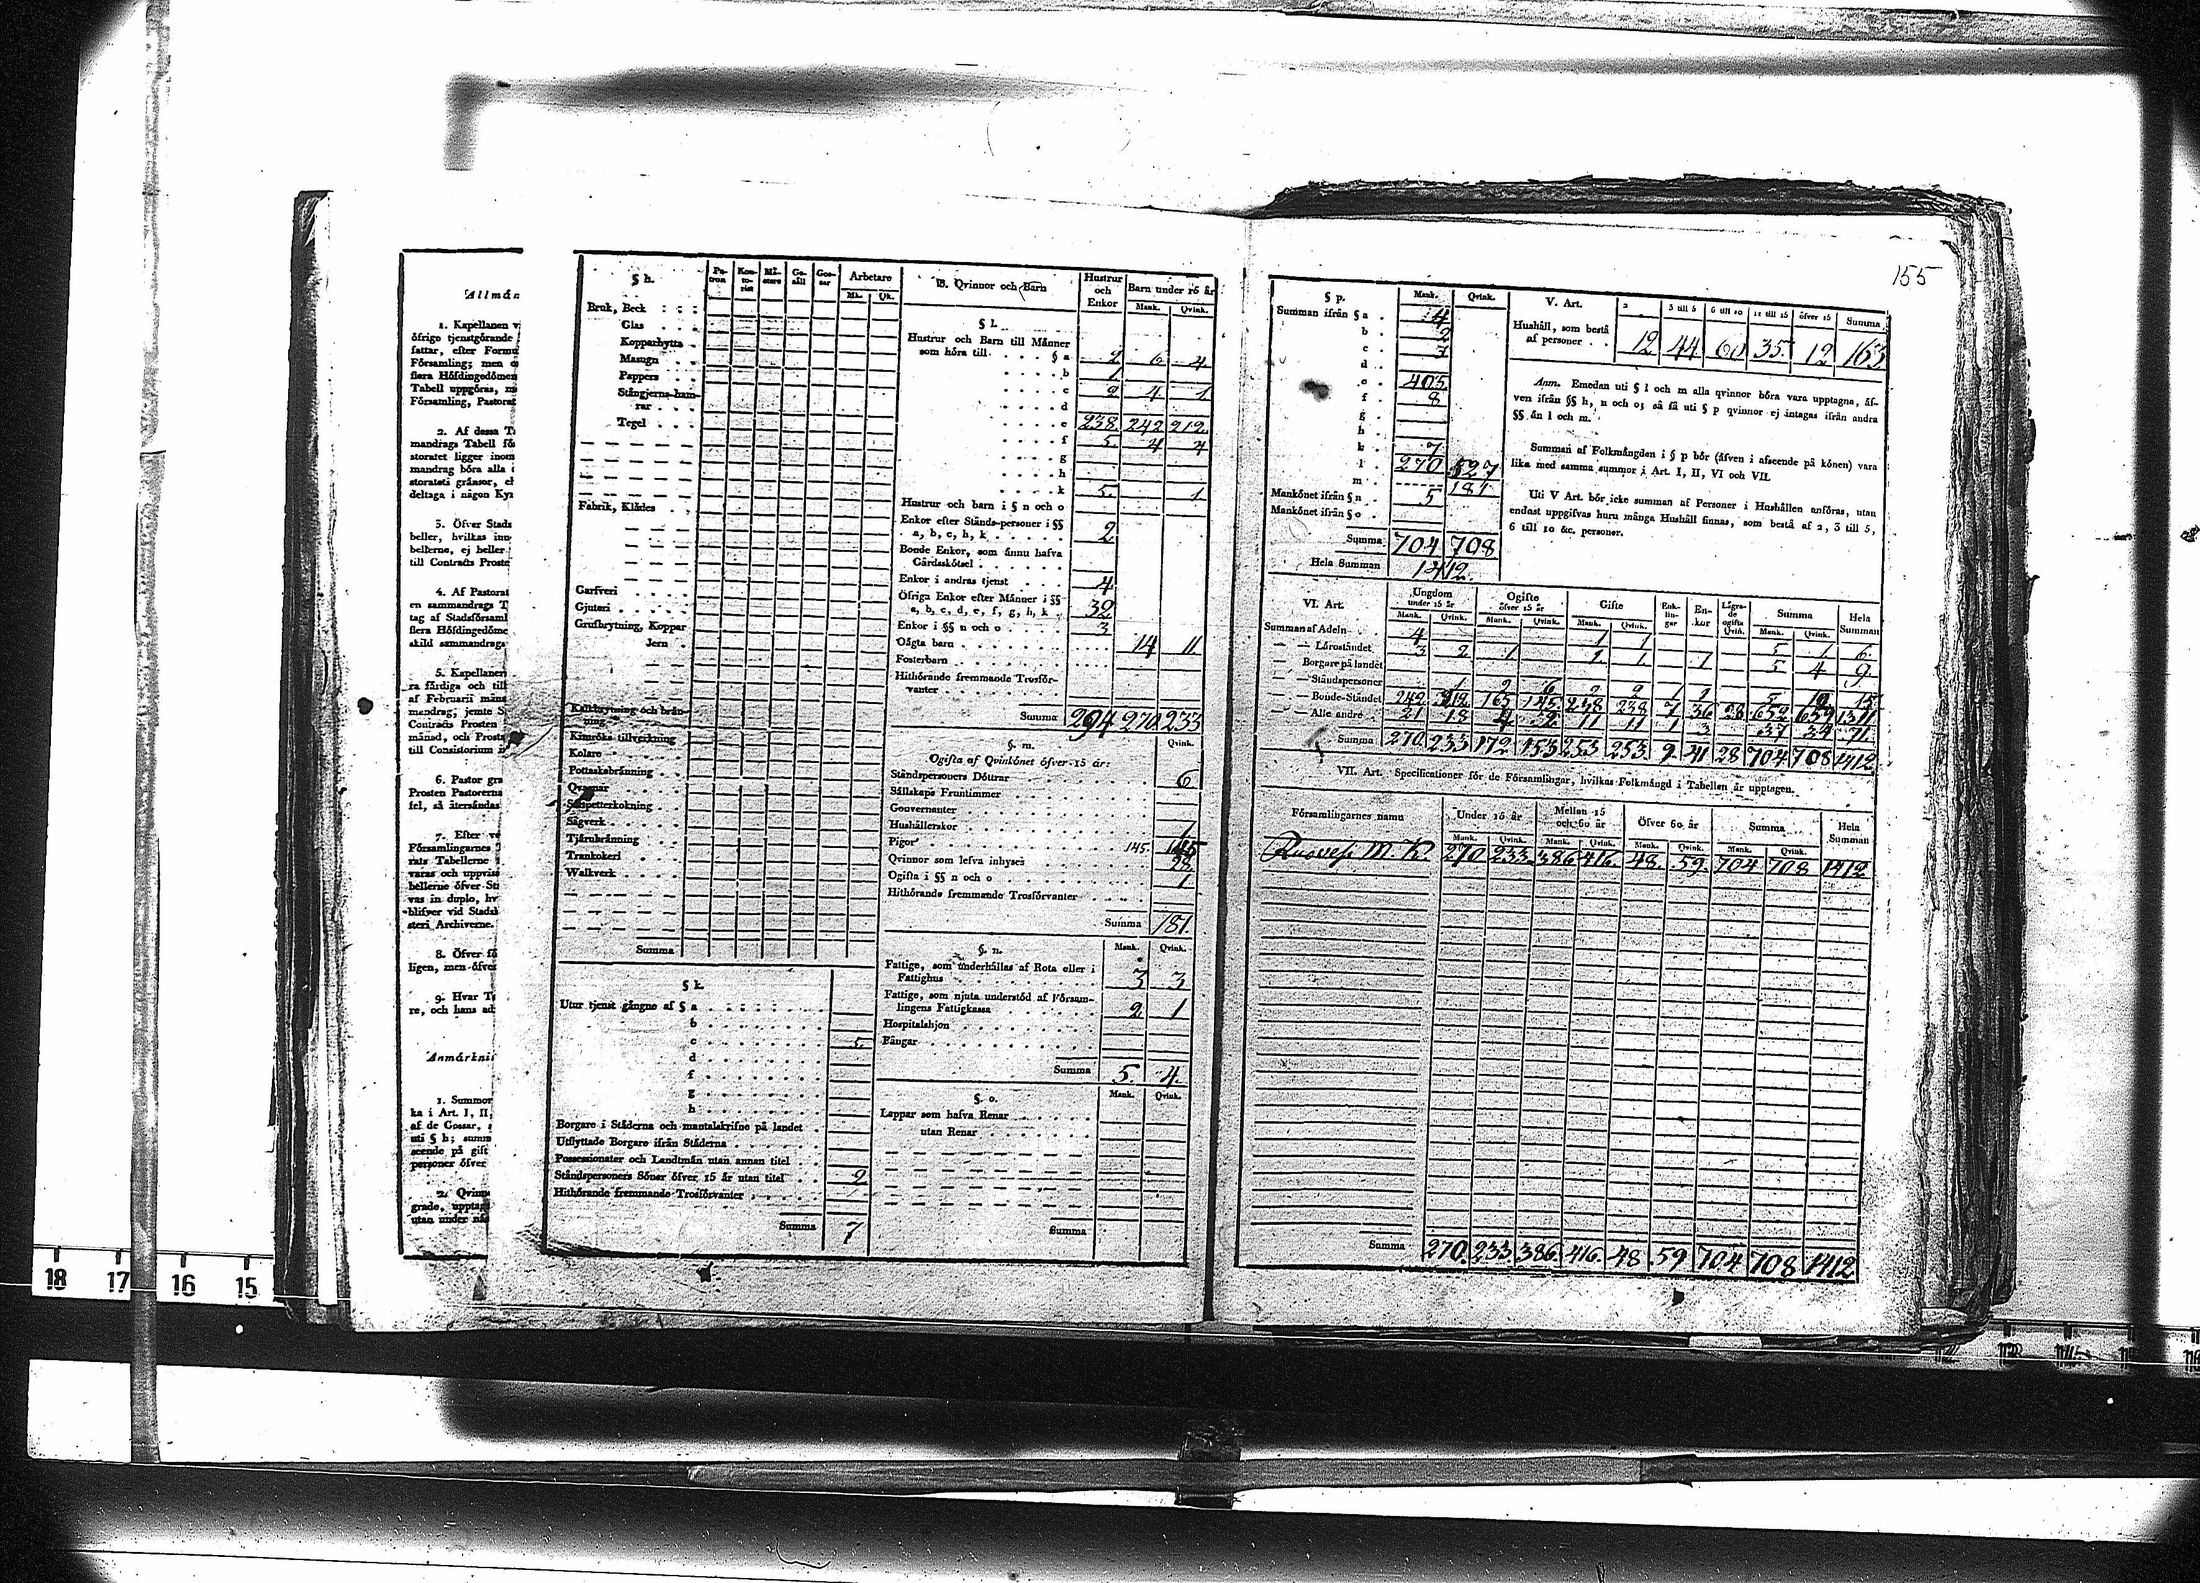 155
Allmän
1. Kapellanen v
öfrige tjenstgörande
fattar, efter Formu
Församling; men o
flera Höfdingedömen
Tabell uppgöras, m
Församling, Pastorat
2. Af dessa T
mandrags Tabell för
storatet ligger inom
mandrag böra alla
storatets gränsor, el
deltaga i någon Kyr
3. Öfver Stads
beller, hvilkas inn
bellerne, ej heller
till Contracts Proste
4. Af Pastorat
en sammandrags T
tag af Stadsförsaml
flera Höfdingedöme
skild sammandrags
5. Kapellanen
ra färdiga och till
af Februarii mån
mandrag, jemte S
Contracts Prosten
månad, och Prost
till Consistorium
6. Pastor gra
Prosten Pastorerna
fel, så återsändas
7. Efter ve
Församlingarnes
rats Tabellerne
varas och uppviss
bellerne öfver St
vas in duplo, hv
blifver vid Stads
steri Archiverne.
8. Öfver
ligen, men öfver
9. Hvar T
re, och hans ad
Anmärkni
1. Summor
ka i Art. I, II,
af de Gossar,
uti § h; summ
seende på gift
personer öfver
2. Qvinn
grade, upptag
utan under nå
§ h.
Pa-tron Kon-to-rist Mä-stare Ge-säll Gos-sar Arbetare
Mk. Qk.
Bruk, Beck
Glas
Kopparhytta
Masugn
Pappers
Stångjerns-ham-
rar
Tegel
Fabrik, Klädes
Garfveri
Gjuteri
Grufbrytning, Koppar
Jern
Kalkbrytning och brän-
ning
Kimröks tillverkning
Kolare
Pottaskebränning
Qvarnar
Salpetterkokning
Sågverk
Tjärubränning
Trankokeri
Walkverk
Summa
§ k.
Utur tjenst gångne af § a
b
c 5.
d
f
g
h
Borgare i Städerna och mantalskrifne på landet
Utflyttade Borgare ifrån Städerna
Possessionater och Landtmän utan annan titel
Ståndspersoners Söner öfver 15 år utan titel 2
Hithörande fremmande Trosförvanter
Summa 7
B. Qvinnor och Barn Hustrur och Enkor Barn under 15 år
Mank. Qvink.
§ l.
Hustrur och Barn till Männer
som höra till § a 2 6 4
b 1
c 2 4 1
d
e 238 242 212.
f 5. 4 4
g
h
k 5. 1
Hustrur och barn i § n och o
Enkor efter Stånds-personer i §§
a, b, c, h, k 2
Bonde Enkor, som ännu hafva
Gårdsskötsel
Enkor i andras tjenst 4
Öfriga Enkor efter Männer i §§
a, b, c, d, e, f, g, h, k 32
Enkor i §§ n och o 3
Oägta barn 14 11
Fosterbarn
Hithörande fremmande Trosför-
vanter
Summa 294 270 233
§. m. Qvink.
Ogifta af Qvinkönet öfver 15 år:
Ståndspersoners Döttrar 6
Sällskaps Fruntimmer
Gouvernanter
Hushållerskor 1
Pigor 145. 145
Qvinnor som lefva inhyses 28.
Ogifta i §§ n och o 1
Hithörande fremmande Trosförvanter
Summa 181.
§. n. Mank. Qvink.
Fattige, som underhållas af Rota eller i
Fattighus 3 3
Fattige, som njuta understöd af Försam-
lingens Fattigkassa 2 1
Hospitalshjon
Fångar
Summa 5. 4.
§. o. Mank. Qvink.
Lappar som hafva Renar
utan Renar
Summa
§ p. Mank. Qvink.
Summan ifrån § a 4
b 2
c 7
d
e 405.
f 8
g
h
k 7
l 270 527
m 181
Mankönet ifrån § n 5
Mankönet ifrån § o
Summa 704 708
Hela Summan 1412.
V. Art. 2 3 till 5 6 till 10 11 till 15 öfver 15 Summa
Hushåll, som bestå
af personer 12 44 60 35. 12 163
Anm. Emedan uti § l och m alla qvinnor böra vara upptagna, äf-
ven ifrån §§ h, n och o; så få uti § p qvinnor ej intagas ifrån andra
§§ än l och m.
Summan af Folkmängden i § p bör (äfven i afseende på könen) vara
lika med samma summor i Art. I, II, VI och VII.
Uti V Art. bör icke summan af Personer i Hushållen anföras, utan
endast uppgifvas huru många Hushåll finnas, som bestå af 2, 3 till 5,
6 till 10 &c. personer.
VI. Art. Ungdom under 15 år Ogifte öfver 15 år Gifte Enk-lin-gar En-kor Lägra-de ogifta Qvin. Summa Hela Summan
Mank. Qvink. Mank. Qvink. Mank. Qvink. Mank. Qvink.
Summan af Adeln 4 1 1 5 1 6
— — Läroståndet 3 2 1 1 1 1 5 4 9
— — Borgare på landet
— — Ståndspersoner 1 2 6 2 2 1 1 5 10 15
— — Bonde-Ståndet 242 212 165 145 238 238 7 36 28 652 659 1311
— — Alle andre 21 18 4 2 11 11 1 3 37 34 71
Summa 270 233 172 153 253 253 9 41 28 704 708 1412
VII. Art. Specificationer för de Församlingar, hvilkas Folkmängd i Tabellen är upptagen.
Församlingarnes namn Under 15 år Mellan 15 och 60 år Öfver 60 år Summa Hela Summan
Mank. Qvink. Mank. Qvink. Mank. Qvink. Mank. Qvink.
M. K. 270 233 386 416. 48. 59. 704 708 1412
Summa 270. 233. 386. 416. 48 59 704 708 1412
18 17 16 15